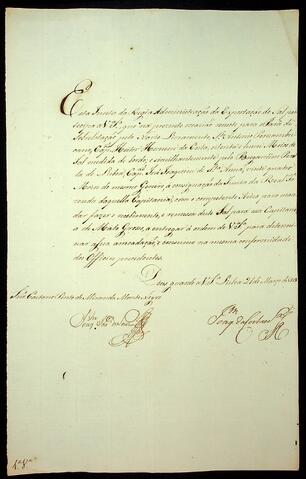 Esta Junta da Regia Administração da Exportação do Sal par
ticipa a V. S.ª, que na prezente occazião remete para o Porto de
pelo Navio Pensamento, S.to Antonio Pernambu
cano, Cap.m Heitor Homem da Costa, oitenta e hum Moios de
Sal medida de bordo; e similhantemente pelo Bergantim
de Cap.m José Joaquim de S.ta Anna, vinte quatro
Moios do mesmo Genero á consignação da Junta da Real Fa
zenda daquella Capitania, com o competente Avizo para man
dar fazer o recebimento, e remessa deste Sal para essa Capitania
de Mato Grosso, a entregar á ordem de V. S.ª para determi
nar a sua arrecadação, e consummo na mesma conformidade
dos Officios precedentes.
Deos guarde a V. S.ª Lisboa 21 de Março de
Caetano Pinto de Miranda Monte Negro
1.ª V.ª